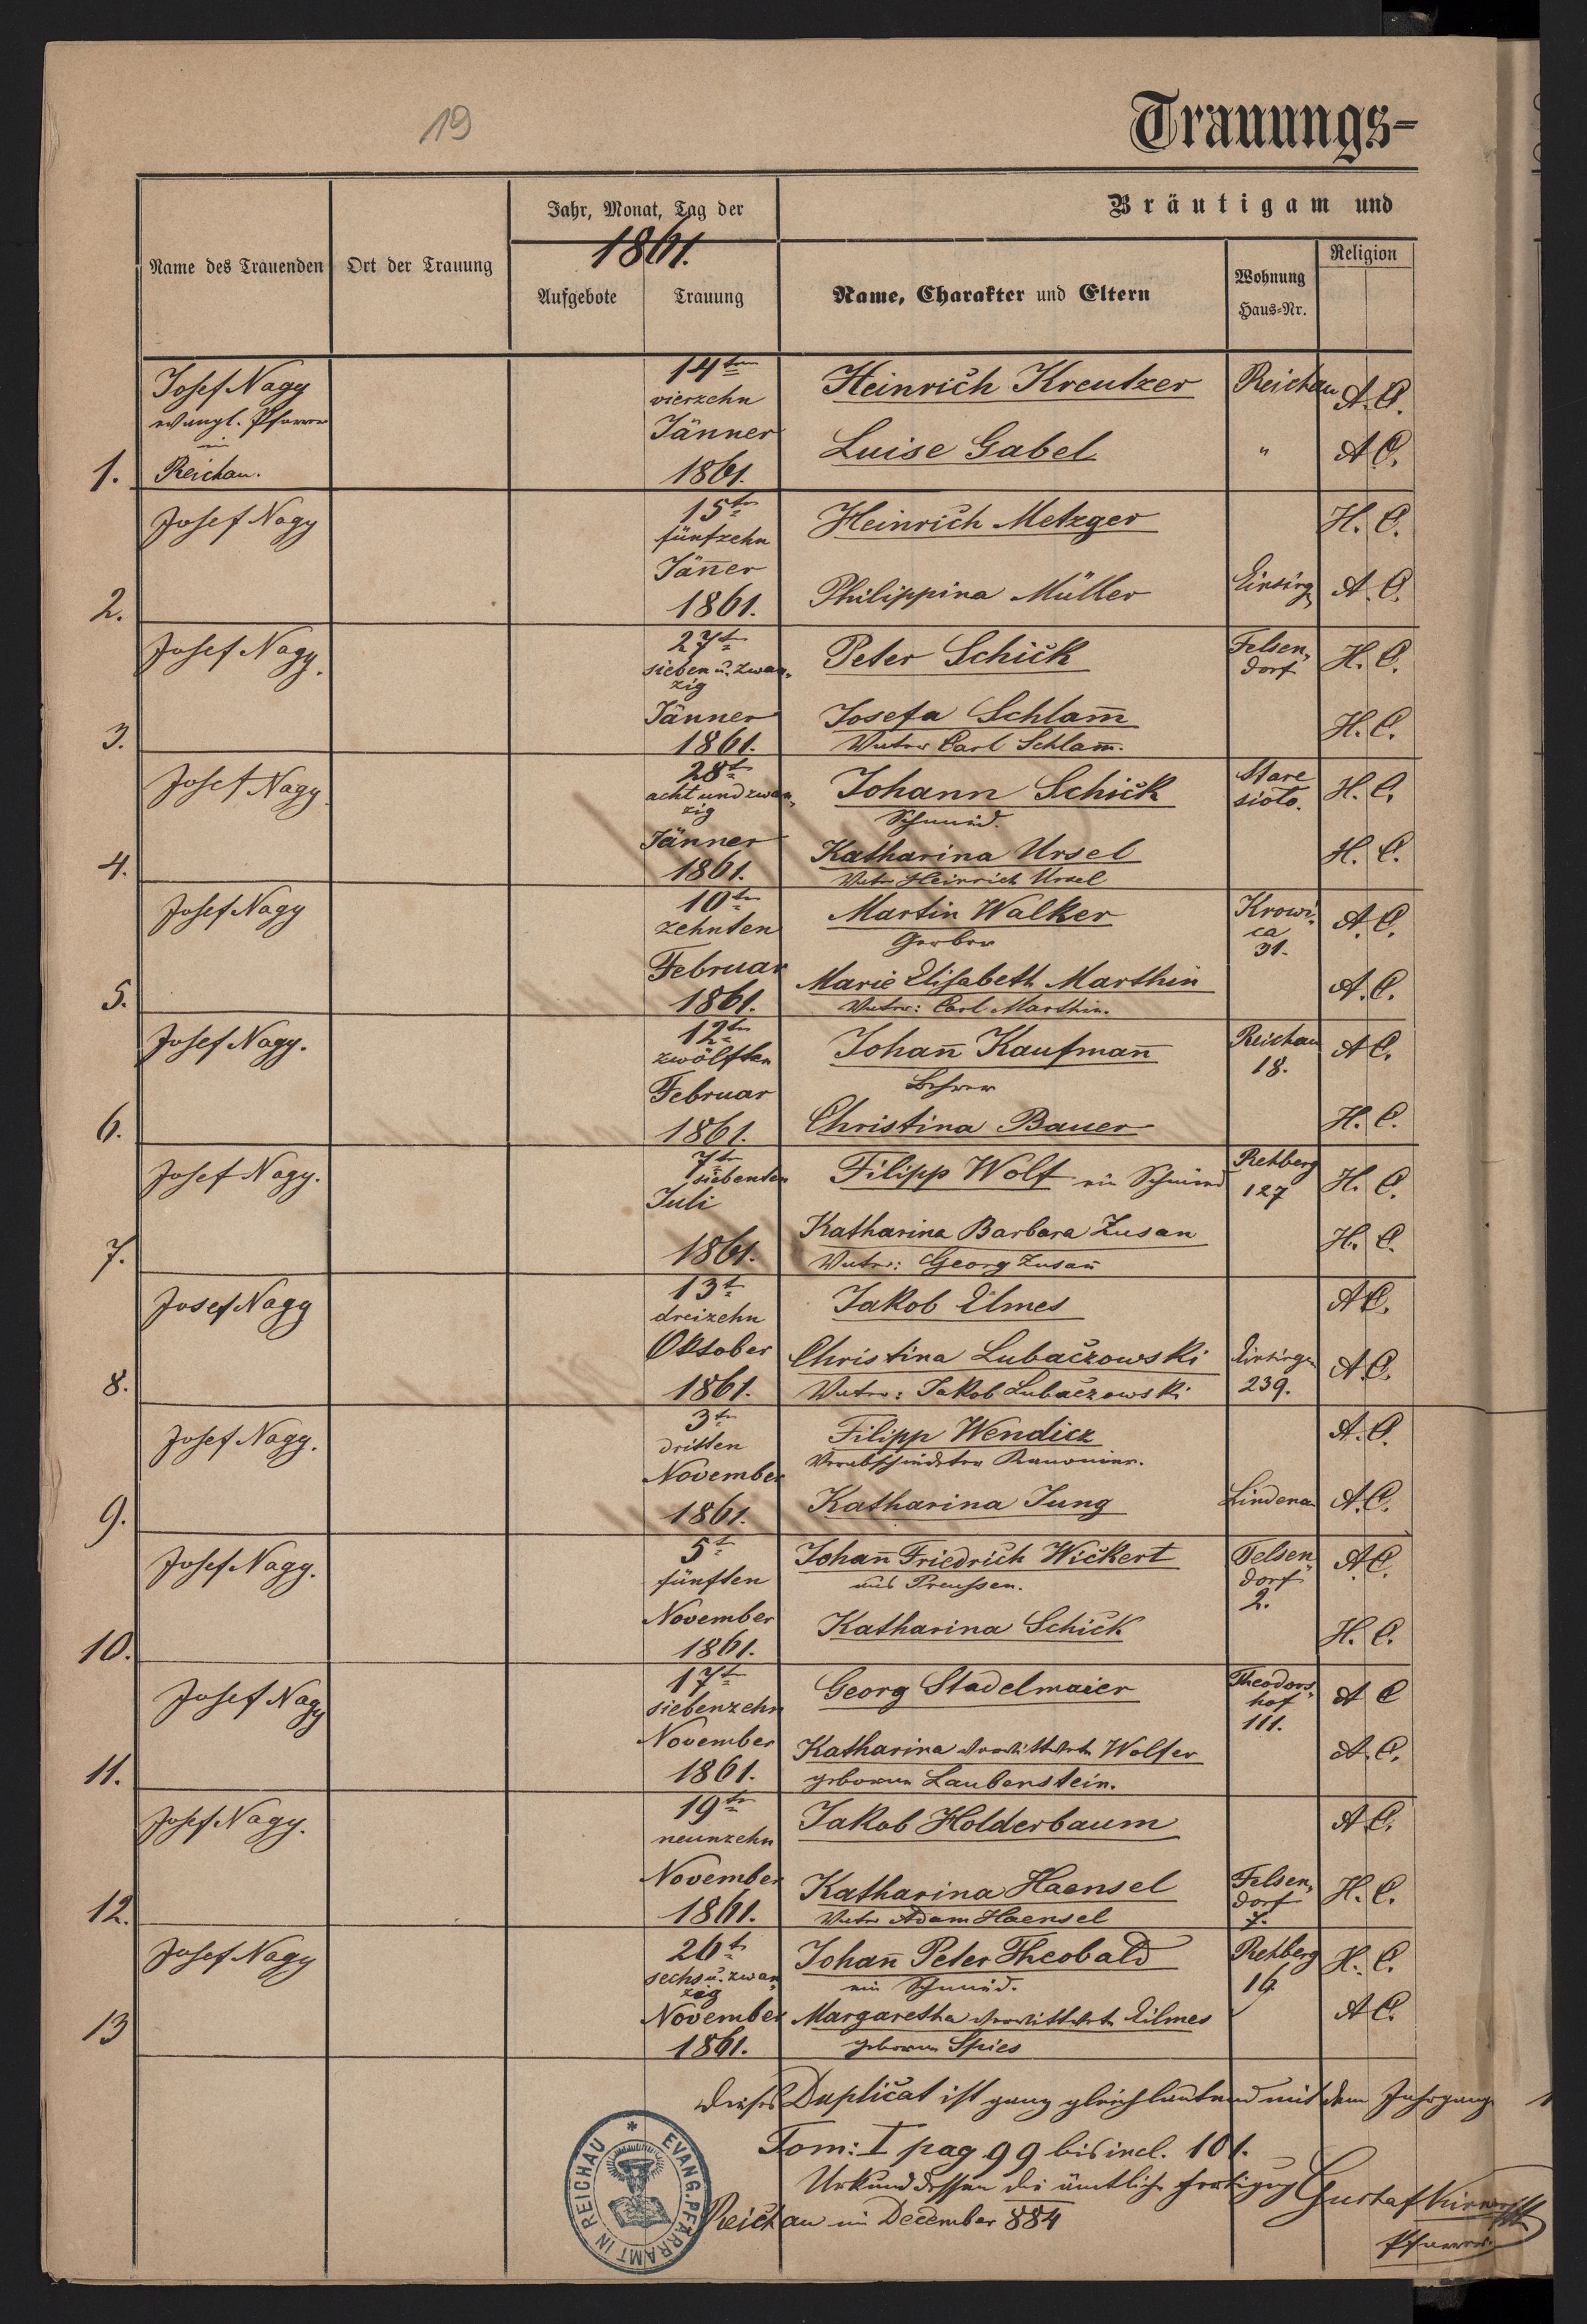 19
Trauungs-
Bräutigam und
Jahr, Monat, Tag der
1861.
Name des Trauenden
Ort der Trauung
Aufgebote
Trauung
Name, Charakter und Eltern
Wohnung
Haus-Nr.
Religion
1.
Josef Nagy
evangl. Pfarrer
in
Reichau.
14ten
vierzehn
Jänner
1861.
Heinrich Kreutzer
Reichau
A. C.
Luise Gabel
"
A. C.
2.
Josef Nagy
15ten
fünfzehn
Jäner
1861.
Heinrich Metzger
H. C.
Philippina Müller
Einsing
A. C.
3.
Josef Nagy.
27ten
sieben u. zwan-
zig
Jänner
1861.
Peter Schick
Felsen-
dorf
H. C.
Josefa Schlam̄
H. C.
Vater Carl Schlam̄.
4.
Josef Nagy.
28t
acht und zwan-
zig
Jänner
1861.
Johann Schick
Schmied.
Stare
siolo.
H. C.
Katharina Ursel
H. C.
Vater Heinrich Ursel
5.
Josef Nagy
10ten
zehnten
Februar
1861.
Martin Walker
Gerber
Krowi-
ca
31.
A. C.
Marie Elisabeth Marthin
A. C.
Vater: Carl Marthin.
6.
Josef Nagy.
12ten
zwölften
Februar
1861.
Johan̄ Kaufman̄
Lehrer
Reichau
18.
A. C.
Christina Bauer
H. C.
7.
Josef Nagy.
7ten
siebenten
Juli
1861.
Filipp Wolf ein Schmied
Rehberg
127
H. C.
Katharina Barbara Zusan
H. C.
Vater: Georg Zusan̄
8.
Josef Nagy
13t
dreizehn
Oktober
1861.
Jakob Elmes
A. C.
Christina Lubaczowski
Einsingen
239.
A. C.
Vater: Jakob Lubaczowski
9.
Josef Nagy.
3ten
dritten
November
1861.
Filipp Wendicz
Verabschiedeter Kanonier.
A. C.
Katharina Jung
Lindenau
A. C.
10.
Josef Nagy.
5t
fünften
November
1861.
Johan̄ Friedrich Wickert
aus Preussen.
Felsen-
dorf
2.
A. C.
Katharina Schick
H. C.
11.
Josef Nagy
17ten
siebenzehn
November
1861.
Georg Stadelmaier
Theodors-
hof
111.
A C
Katharina verwittwete Wolfer
A. C.
geborene Laubenstein.
12.
Josef Nagy.
19ten
neunzehn
November
1861.
Jakob Holderbaum
A C.
Katharina Haensel
Felsen-
dorf
7.
H. C.
Vater Adam Haensel
13
Josef Nagy
26t
sechs u. zwan-
zig
November
1861.
Johan̄ Peter Theobald
ein Schmied.
Rehberg
16
H. C.
Margaretha verwittwete Eilmes
A C.
geborene Spies
Dieses Duplicat ist ganz gleichlautend mit dem Jahrgang
Tom: I pag 99 bis incl. 101.
Urkund dessen die ämtliche Fertigung
Reichau im December 884
Gustaf
Pfarrer.
EVANG. PFARRAMT IN REICHAU